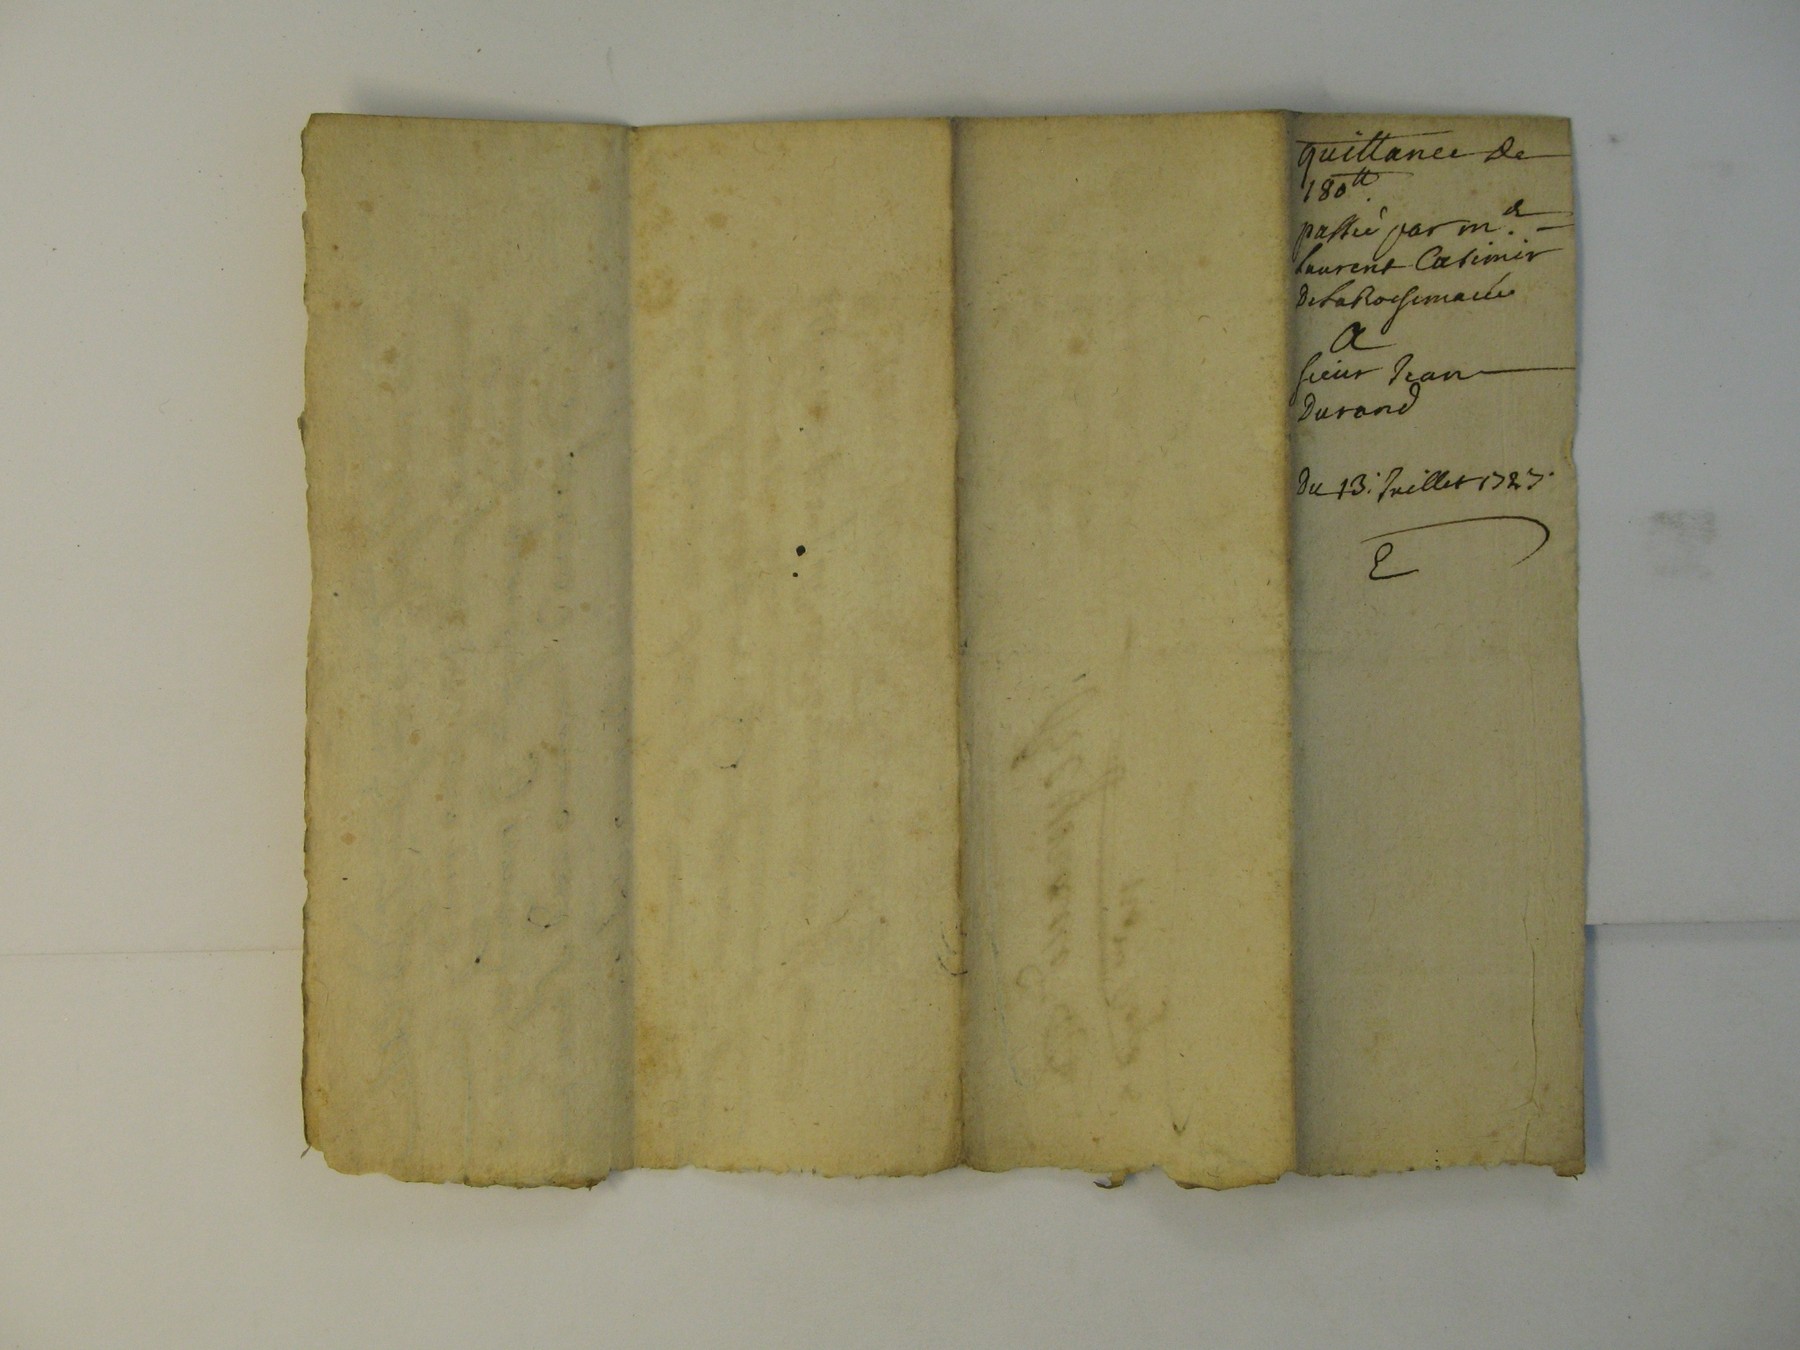 quittance de
180lt.
passée par mr.
Laurent Casimir
De la Rochemacée
A
sieur Jean
Durand
Du 13. Juillet 1727.
E